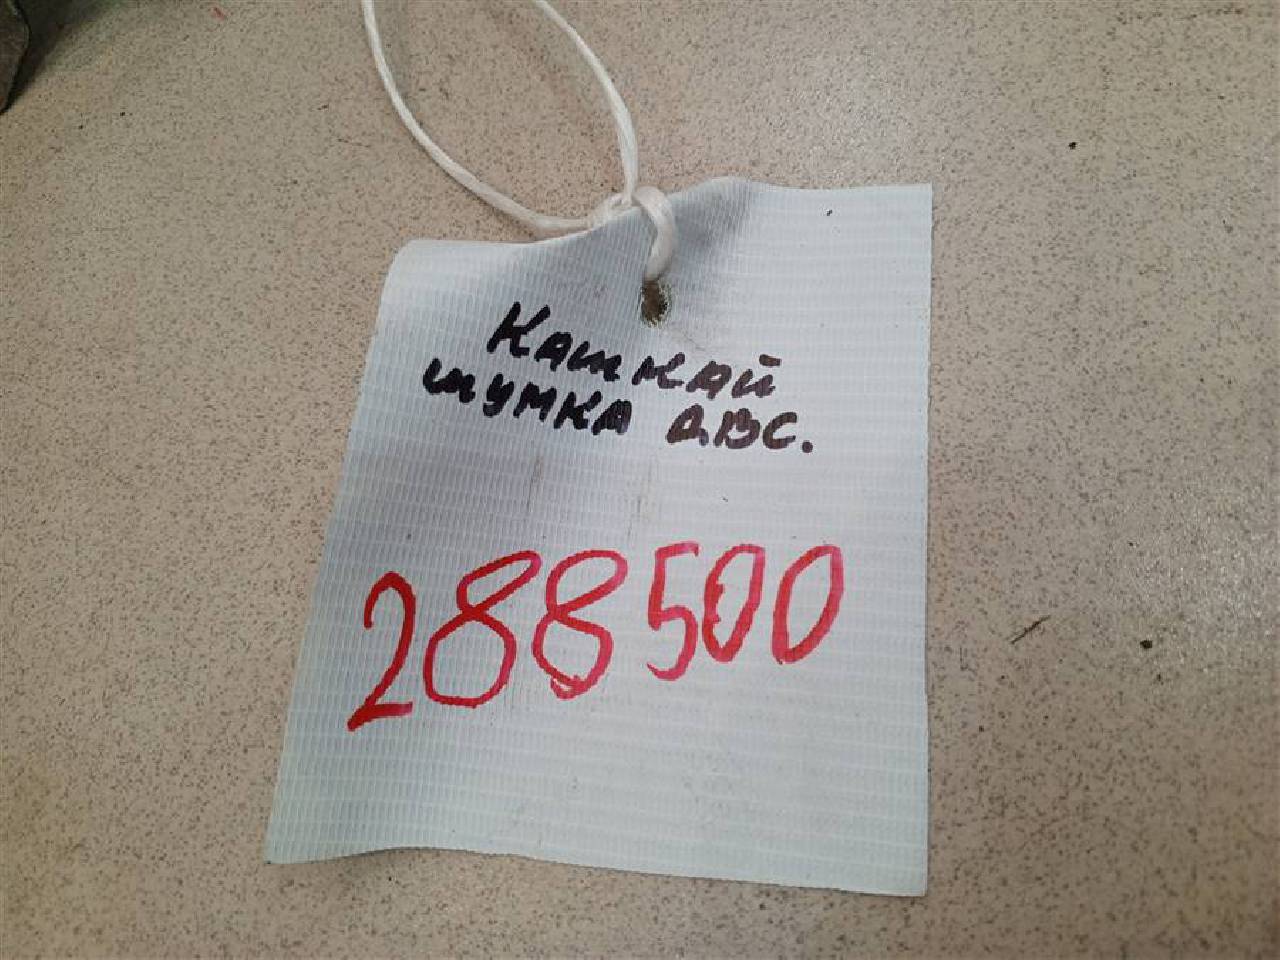 Кашкай
шумка двс.
288500